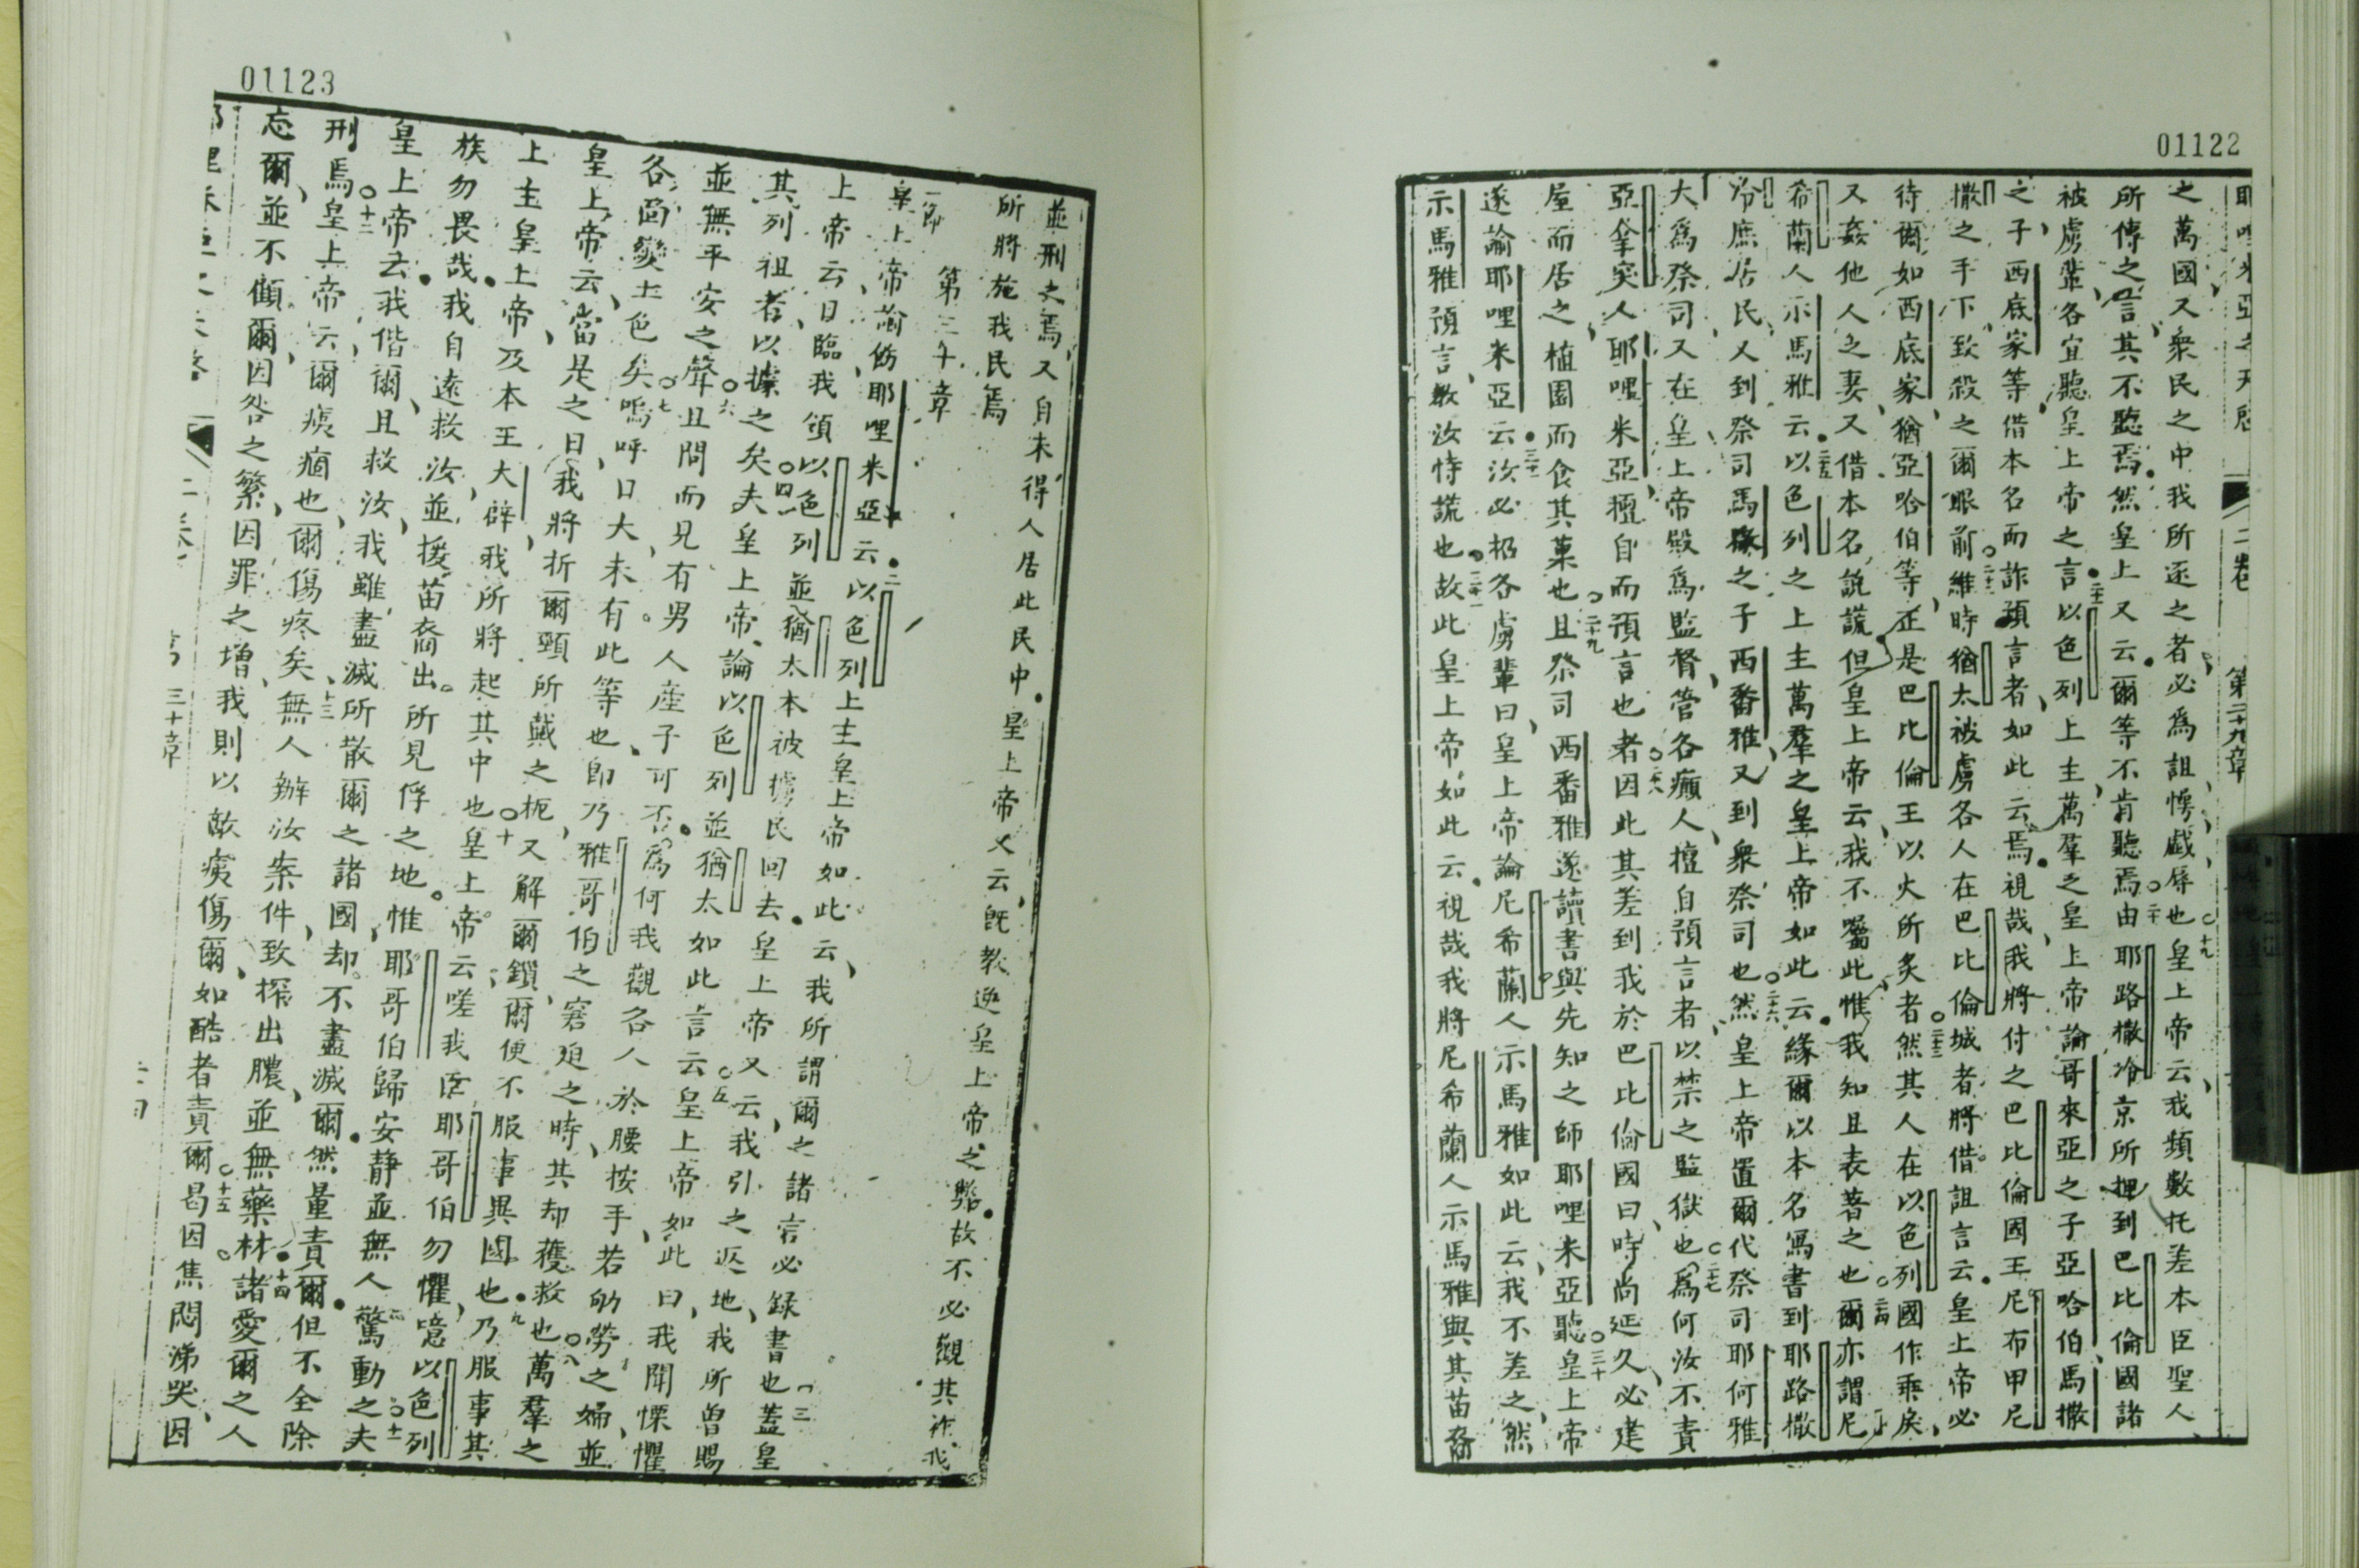 01122
耶哩米亞之天啓 二卷 第二十九章
之萬國又衆民之中我所逐之者必為詛愕戲辱也○十九皇上帝云我頻數托差本臣聖人
所傳之言其不聽焉然皇上又云爾等不肯聽焉○二十由耶路撒冷京所押到巴比倫國諸
被虜輩各宜聽皇上帝之言二十一以色列上主萬羣之皇上帝論哥來亞之子亞哈伯馬撒
之子西底家等借本名而詐預言者如此云焉視哉我將付之巴比倫國王尼布甲尼
撒之手下致殺之爾眼前○二十二維時猶太被虜各人在巴比倫城者將借詛言云皇上帝必
待爾如西底家猶亞哈伯等正是巴比倫王以火所炙者○二十三然其人在以色列國作乖戾
又姦他人之妻又借本名說謊但皇上帝云我不囑此惟我知且表著之也○二十四爾亦謂尼
希蘭人示馬雅云二十五以色列之上主萬羣之皇上帝如此云緣爾以本名寫書到耶路撒
冷庶居民又到祭司馬 之子西番雅又到衆祭司也○二十六然皇上帝置爾代祭司耶何雅
大為祭司又在皇上帝殿為監督管各癲人擅自預言者以禁之監獄也○二十七為何汝不責
亞拿突人耶哩米亞擅自而預言也○二十八者因此其差到我於巴比倫國曰時尚延久必建
屋而居之植園而食其菓也○二十九且祭司西番雅遂讀書與先知之師耶哩米亞聽○三十皇上帝
遂諭耶哩米亞云三十一汝必招各虜輩曰皇上帝論尼希蘭人示馬雅如此云我不差之然
示馬雅預言教汝恃謊也三十二故此皇上帝如此云視哉我將尼希蘭人示馬雅與其苗裔
01123
並刑之焉又自未得人居此民中皇上帝又云旣教逆皇上帝之 故不必觀其祚我
所將施我民焉
第三十章
一節
皇上帝諭飭耶哩米亞云二以色列上主皇上帝如此云我所謂爾之諸言必録書也三蓋皇
上帝云日臨我領以色列並猶太本被擄民回去皇上帝又云我引之返地我所曾賜
其列祖者以據之矣○四夫皇上帝論以色列並猶太如此言云○五皇上帝如此曰我聞慄懼
並無平安之聲○六且問而見有男人產子可否為何我觀各人於腰按手若劬勞之婦並
各面變土色矣○七嗚呼日大未有此等也即乃雅哥伯之窘廹之時其却獲救也○八萬羣之
皇上帝云當是之日我將折爾頸所戴之枙又解爾鎖爾便不服事異國也九乃服事其
上主皇上帝及本王大辟我所將起其中也○十皇上帝云嗟我臣耶哥伯勿懼噫以色列
族勿畏哉我自遠救汝並援苗裔出所見俘之地惟耶哥伯歸安靜並無人驚動之○十一夫
皇上帝云我偕爾且救汝我雖盡滅所散爾之諸國却不盡滅爾然量責爾但不全除
刑焉○十二皇上帝云爾痍痼也爾傷疼矣十三無人辦汝案件致探出膿並無藥材十四諸愛爾之人
忘爾並不顧爾因咎之繁因罪之增我則以敵痍傷爾如酷者責爾○十五曷因焦悶涕哭因
三十章